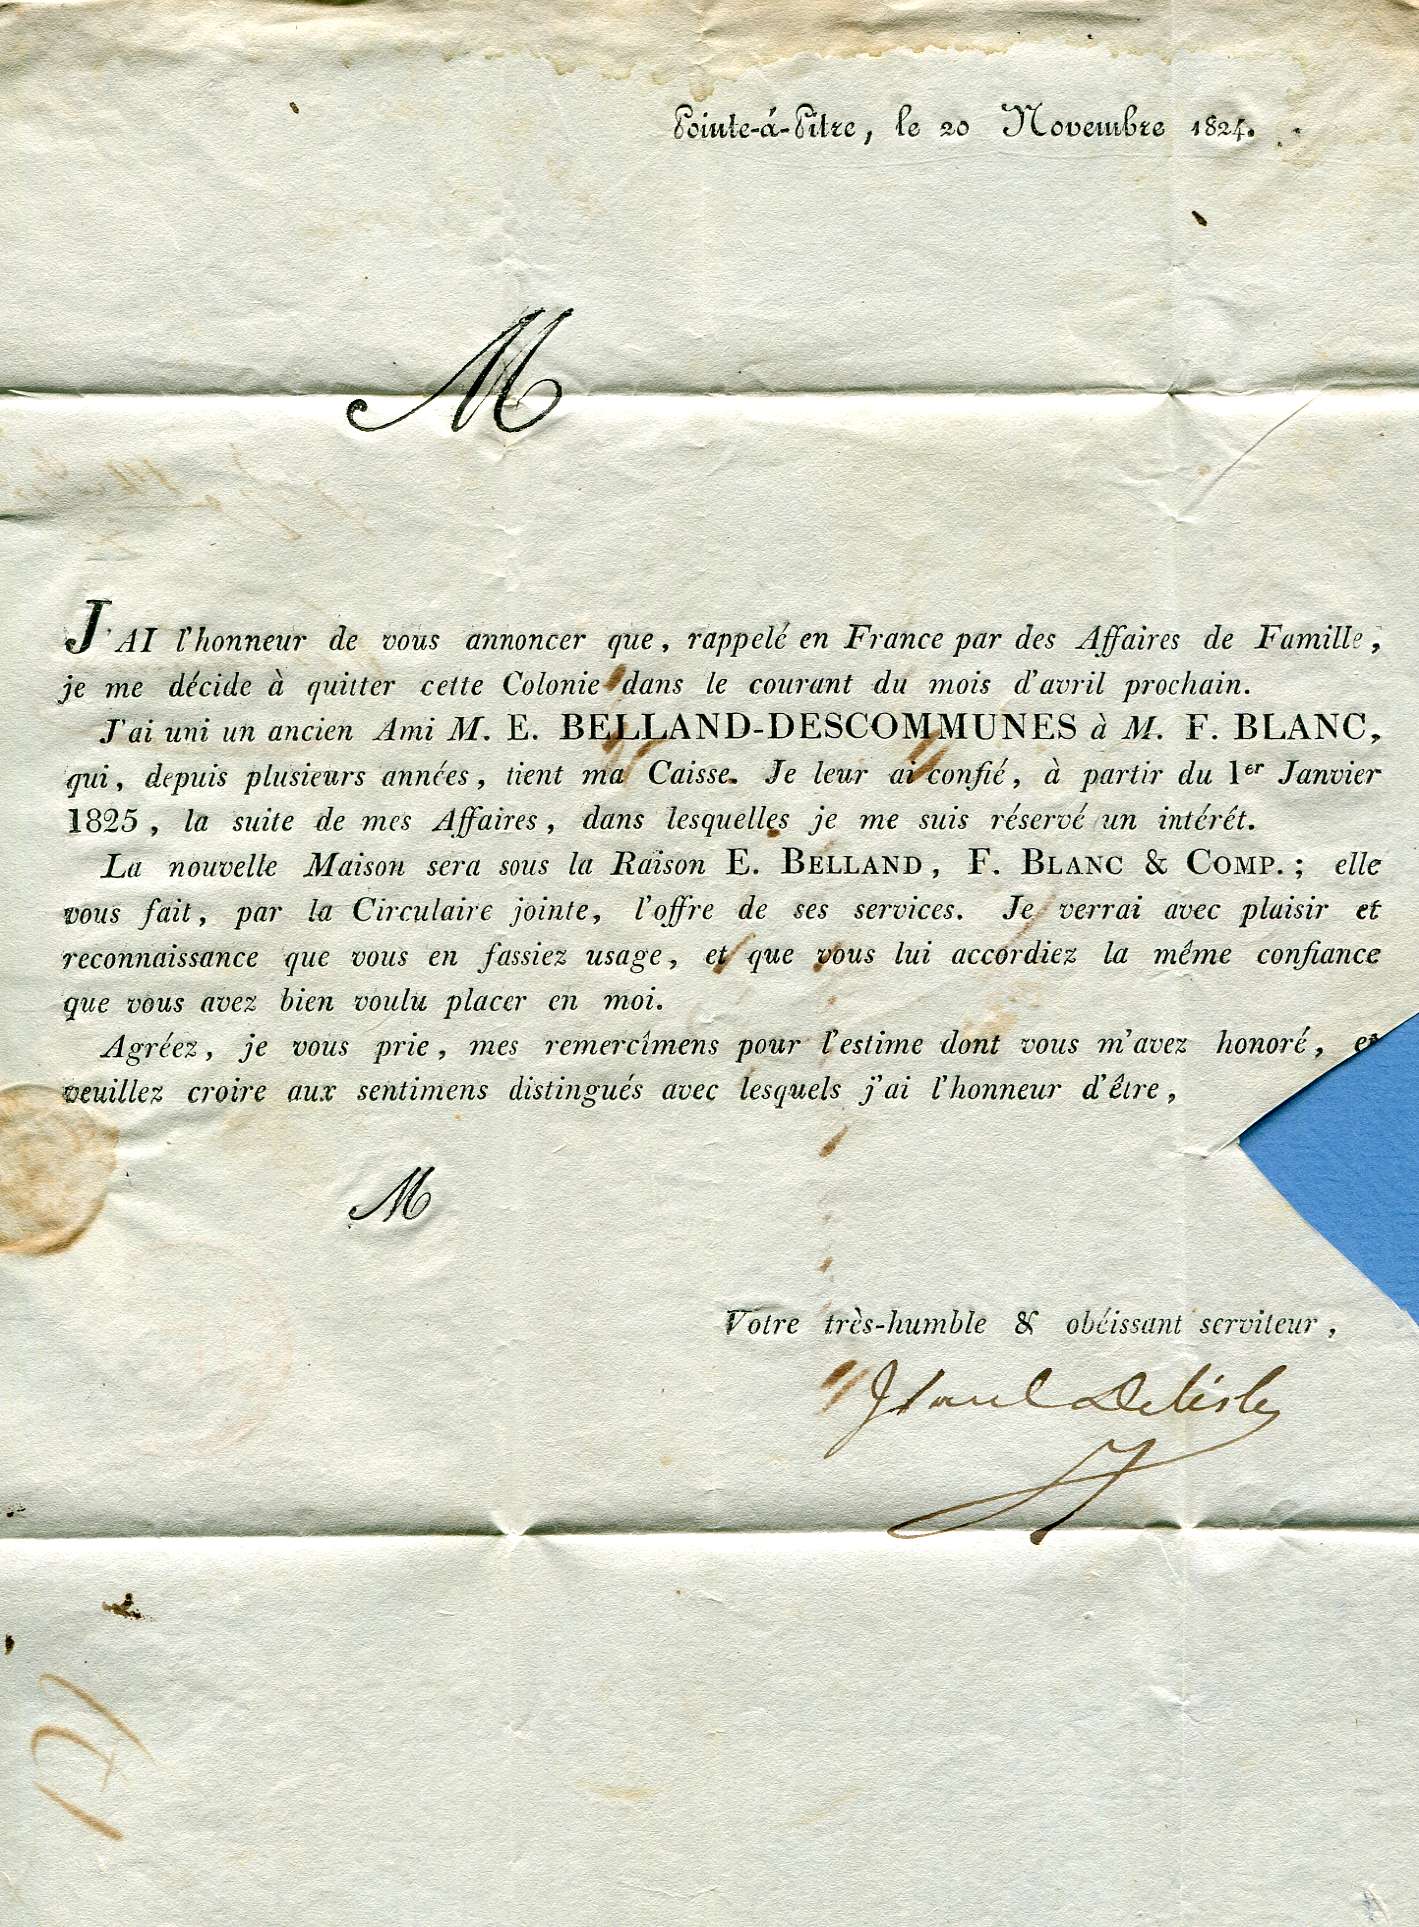 Pointe-à-Pitre, le 20 Novembre 1824.
M
J'AI l'honneur de vous annoncer que, rappelé en France par des Affaires de Famille,
je me décide à quitter cette Colonie dans le courant du mois d'avril prochain.
J'ai uni un ancien Ami M. E. BELLAND-DESCOMMUNES à M. F. BLANC,
qui, depuis plusieurs années, tient ma Caisse. Je leur ai confié, à partir du 1er Janvier
1825, la suite de mes Affaires, dans lesquelles je me suis réservé un intérêt.
La nouvelle Maison sera sous la Raison E. BELLAND, F. BLANC & COMP.; elle
vous fait, par la Circulaire jointe, l'offre de ses services. Je verrai avec plaisir et
reconnaissance que vous en fassiez usage, et que vous lui accordiez la même confiance
que vous avez bien voulu placer en moi.
Agréez, je vous prie, mes remercîmens pour l'estime dont vous m'avez honoré, et
veuillez croire aux sentimens distingués avec lesquels j'ai l'honneur d'être,
M
Votre très-humble & obéissant serviteur,
Delisle